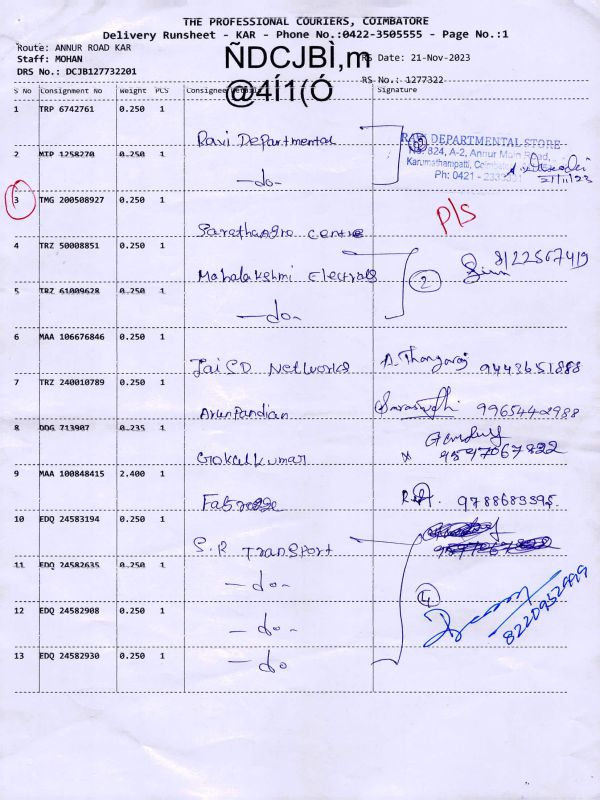 THE PROFESSIONAL COURIERS, COIMBATORE
Delivery Runsheet - KAR - Phone No.:0422-3505555 - Page No.:1
Route: ANNUR ROAD KAR
Staff: MOHAN
ÑDCJBÌ,m
RS Date: 21-Nov-2023
DRS No.: DCJB127732201
@4Í1(Ó
RS No.: 1277322
S No Consignment No Weight PCS Consignee Details Signature
1 TRP 6742761 0.250 1 Ravi. Departmental
RAVI DEPARTMENTAL STORE
No. 824, A-2, Annur Main Road,
Karumathampatti, Coimbatore
Ph: 0421 -
21/11/23
2 MTP 1258270 0.250 1 -do-
3 TMG 200508927 0.250 1 centre P/S
4 TRZ 50008851 0.250 1 Mahalakshmi Electrals 2
5 TRZ 61009628 0.250 1 -do-
6 MAA 106676846 0.250 1 Jai SD Networks A. Thangaraj 9443651888
7 TRZ 240010789 0.250 1 ArunPandian Saraswathi 9965442988
8 DDG 713907 0.235 1 Gokulkumar
9 MAA 100848415 2.400 1 9788683395.
10 EDQ 24583194 0.250 1 S.R Transport
11 EDQ 24582635 0.250 1 -do-
12 EDQ 24582908 0.250 1 -do- 4 8220952999
13 EDQ 24582930 0.250 1 -do